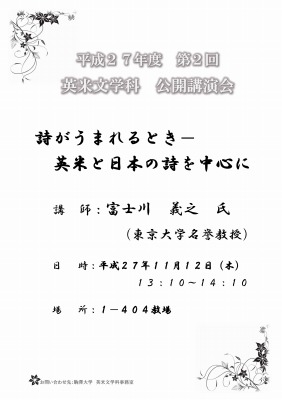 平成27年度　第2回
英米文学科　公開講演会
詩がうまれるとき－
英米と日本の詩を中心に
講　師：富士川　義之　氏
（東京大学名誉教授）
日　時：平成27年11月12日（木）
13：10～14：10
場　所：1－404教場
お問い合わせ先：駒澤大学　英米文学科事務室